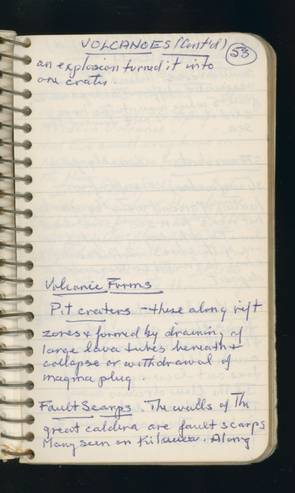 VOLCANOES (Cont'd) 53
an explosion turned it into
one crater
Volcanic Forms
Pit craters - these along rift
zones & formed by draining of
large lava tubes beneath &
collapse or withdrawal of
magma plug.
Fault Scarps. The walls of The
great caldera are fault scarps
Many seen on Kilauea. Along